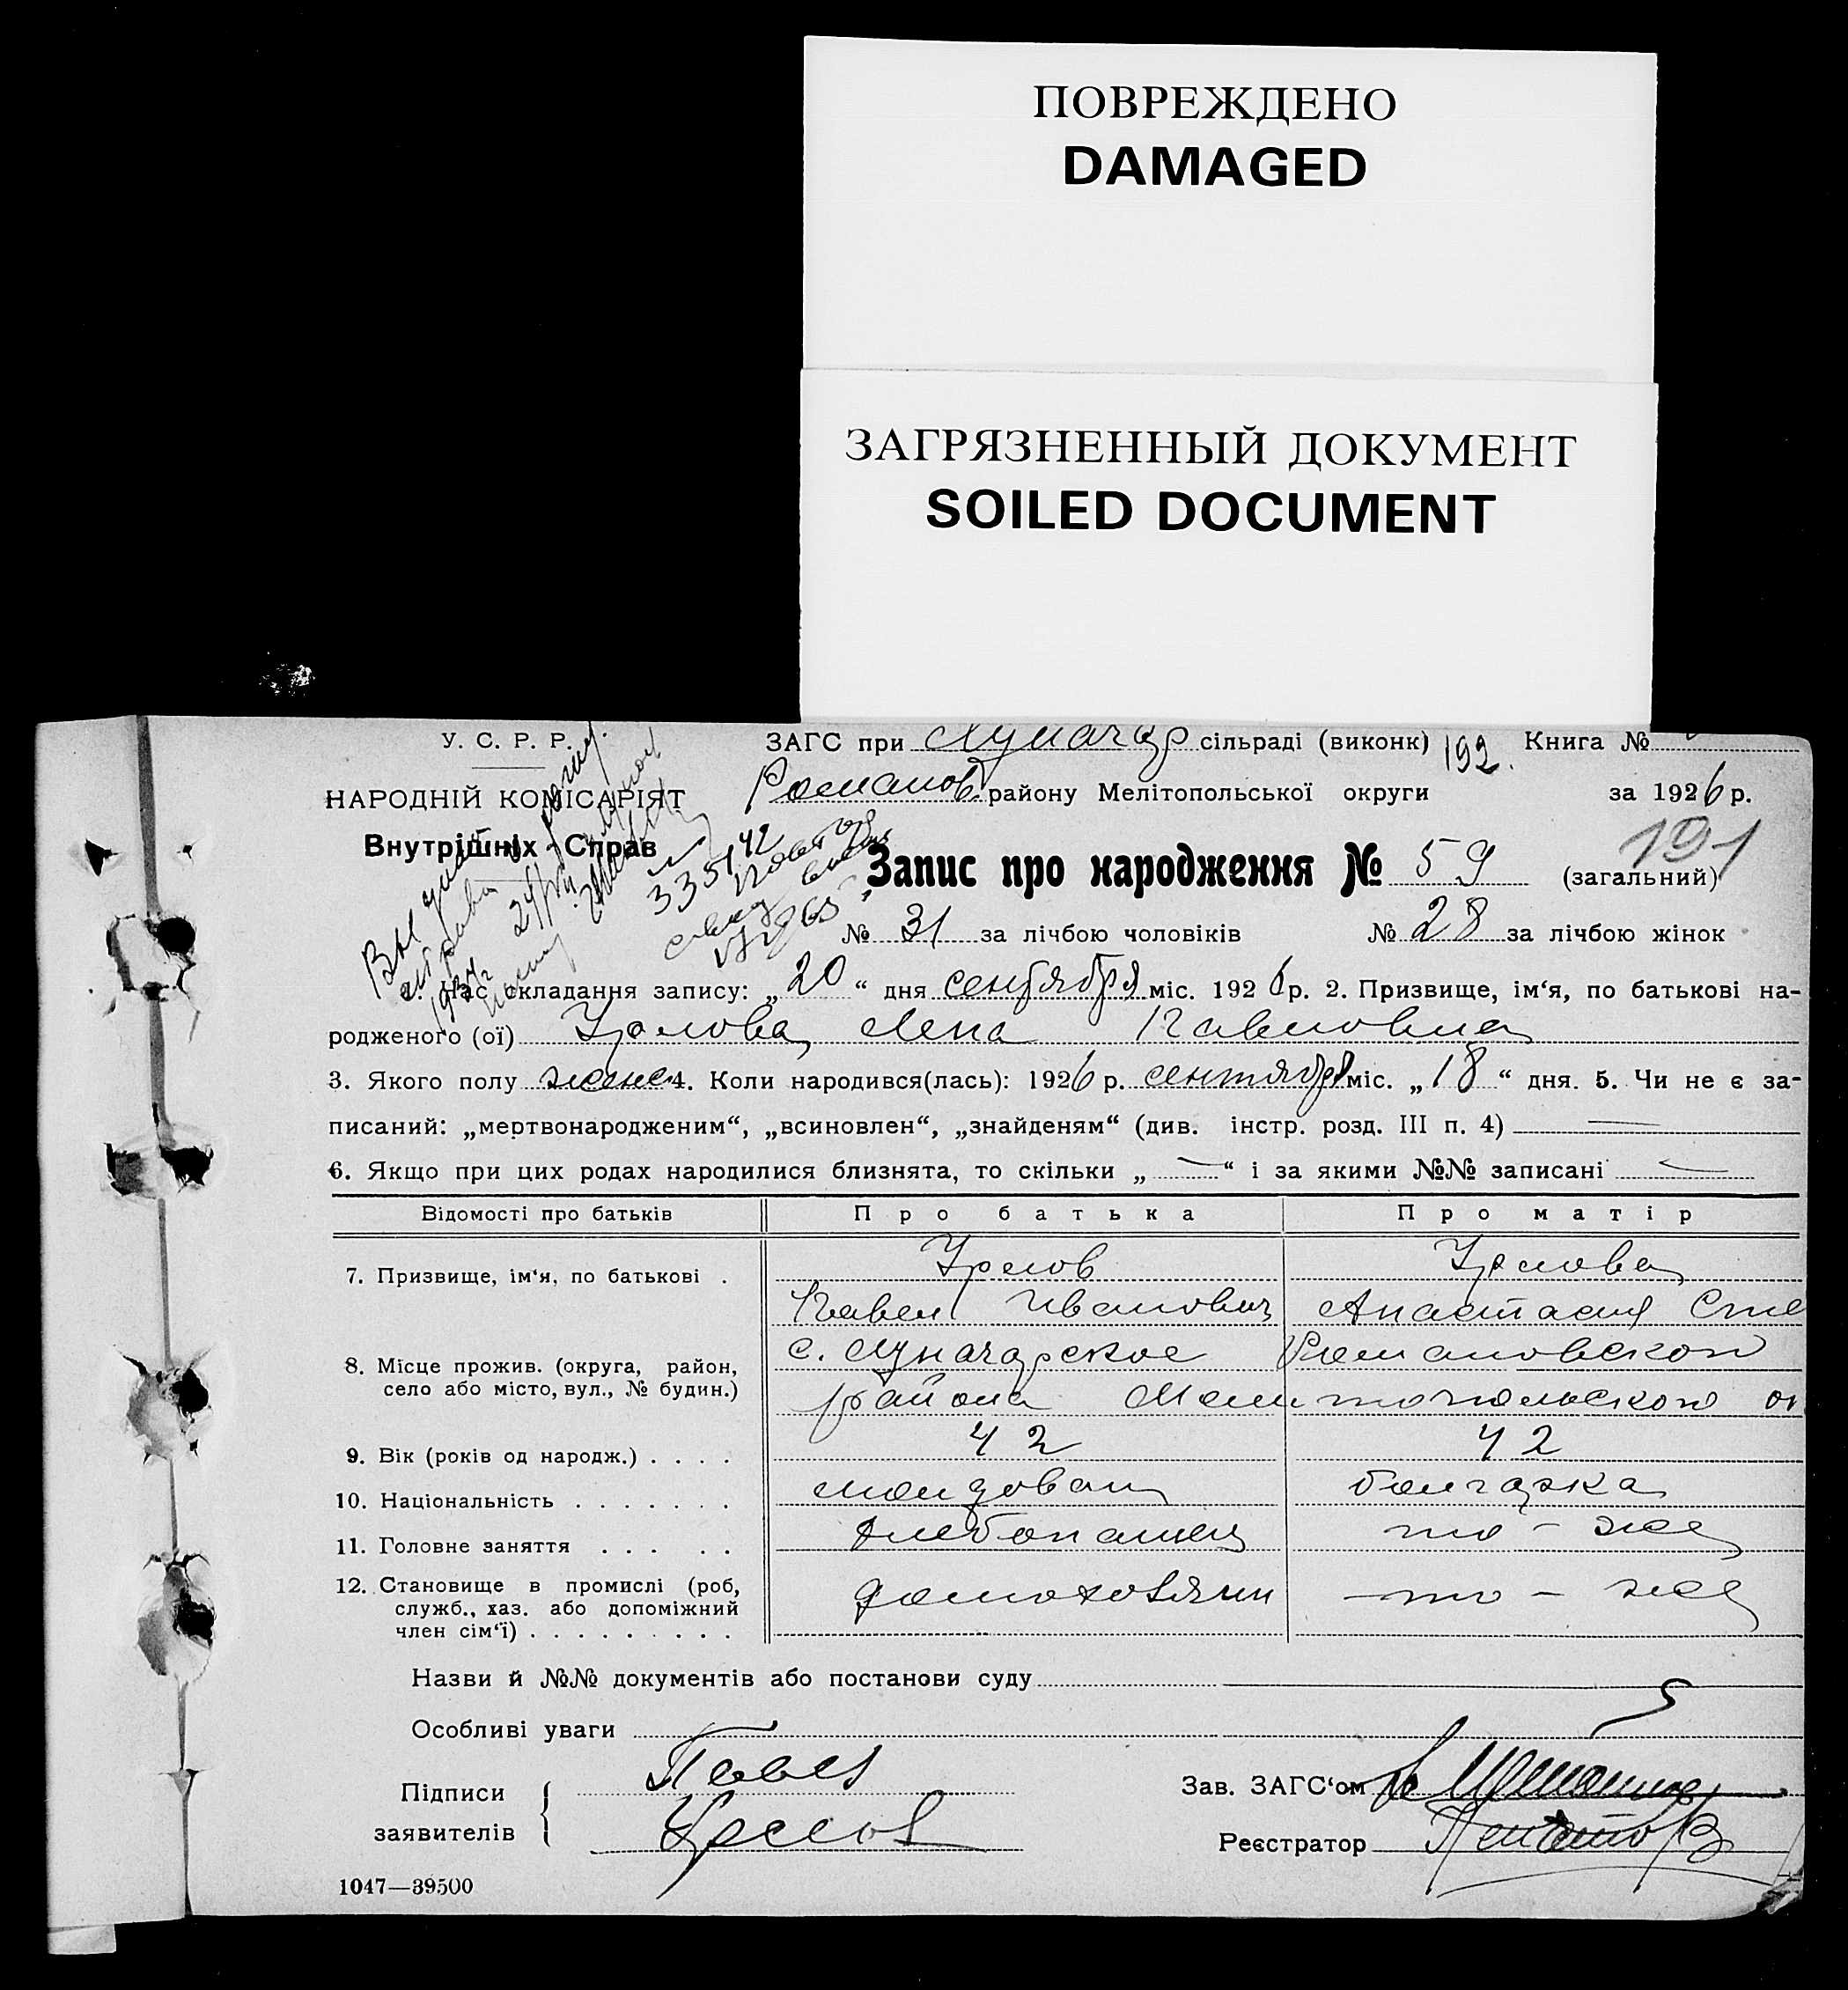 ПОВРЕЖДЕНО
DAMAGED
ЗАГРЯЗНЕННЫЙ ДОКУМЕНТ
SOILED DOCUMENT
У. С. Р. Р.
НАРОДНІЙ КОМІСАРІЯТ
Внутрішніх Справ
ЗАГС при Луначар сільраді (виконк) 192. Книга №
Романов. району Мелітопольської округи за 1926 р.
191
Запис про народження № 59 (загальний)
№ 31 за лічбою чоловіків № 28 за лічбою жінок
335142
1. Час складання запису: „20“ дня сентября міс. 1926 р. 2. Призвище, ім‘я, по батькові на-
родженого (ої) Урсова Лена Павловна
3. Якого полу женс 4. Коли народився(лась): 1926 р. сентября міс. „18“ дня. 5. Чи не є за-
писаний: „мертвонародженим“, „всиновлен“, „знайденям“ (див. інстр. розд. III п. 4) —
6. Якщо при цих родах народилися близнята, то скільки „—“ і за якими №№ записані —
Відомості про батьків Про батька Про матір
7. Призвище, ім‘я, по батькові . Урсов Урсова
Павел Иванович Анастасия Сте
8. Місце прожив. (округа, район, село або місто, вул., № будин.) с. Луначарское Романовского
района Мелитопольского ок
9. Вік (років од народж.) . . . . 42 42
10. Національність . . . . . . . молдован болгарка
11. Головне заняття . . . . . хлебопашец то-же
12. Становище в промислі (роб, домохозяин -то-же
служб., хаз. або допоміжний
член сім‘ї) . . . . . . . . .
Назви й №№ документів або постанови суду
Особливі уваги
Підписи Павел Зав. ЗАГС‘ом
заявителів Урсов Реєстратор
1047—39500